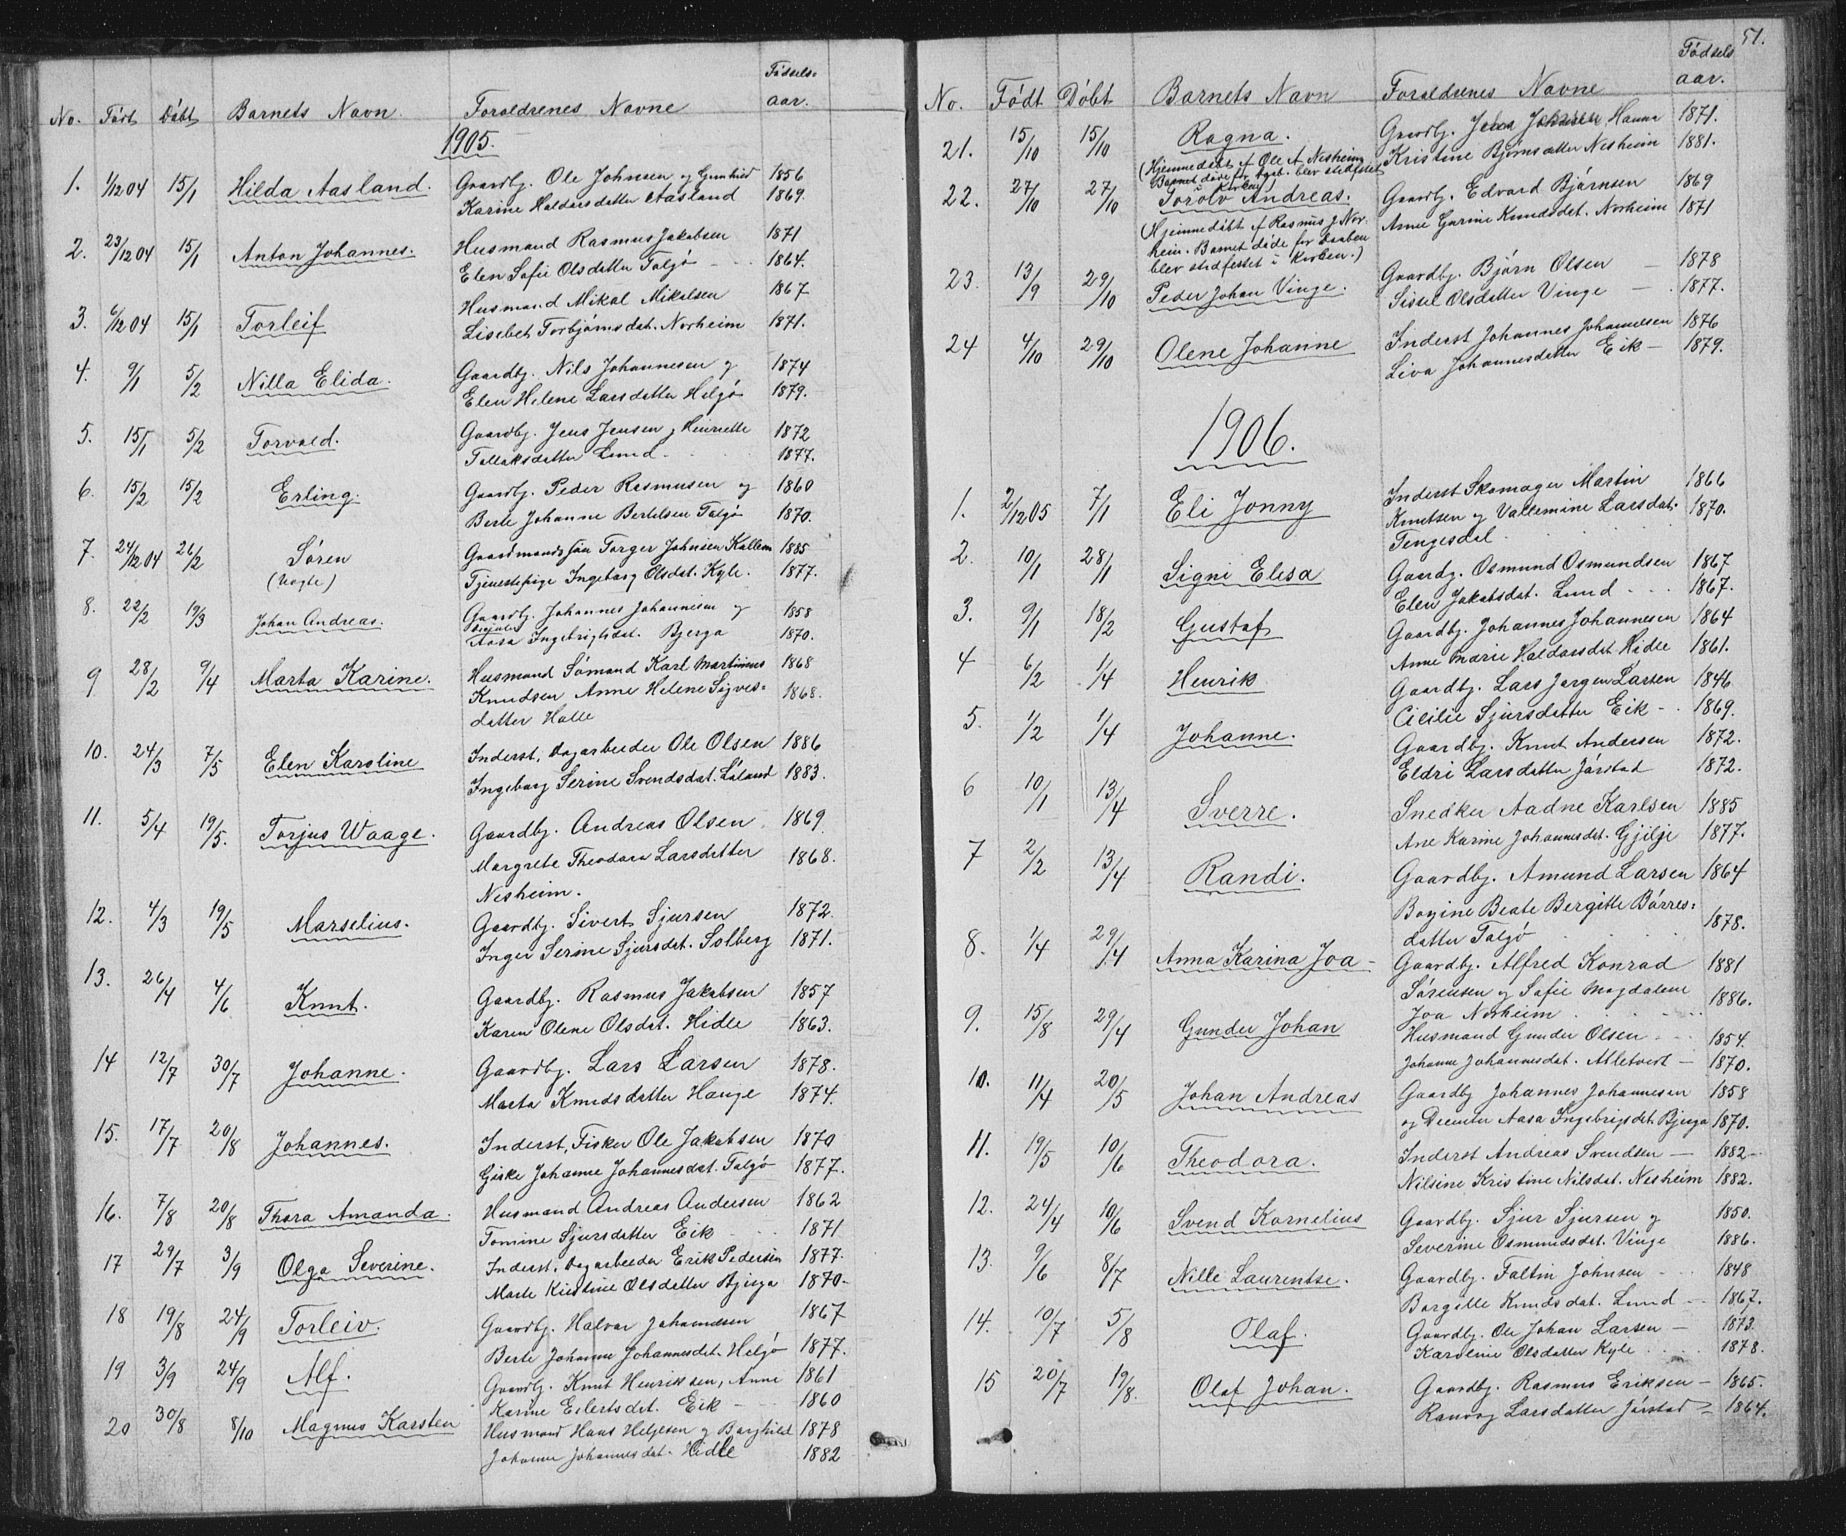 No. Født Døbt Barnets Navn. Forældrenes Navne Fødsels-aar.
1905.
1. 1/12 04 15/1 Hilda Aasland. Gaardbr. Ole Johnsen og Gunhild 1856
Karine Haldorsdatter Aasland 1869.
2. 23/12 04 15/1 Anton Johannes. Husmand Rasmus Jakobsen 1871
Elen Sofie Olsdatter Talgø 1864.
3. 6/12 04 15/1 Torleif Husmand Mikal Mikalsen 1867
Lisebet Torbjørnsdat. Norheim 1871.
4. 9/1 5/2 Nilla Elida. Gaardbr. Nils Johannesen og 1874
Elen Helene Larsdatter Helgø 1879.
5. 15/1 5/2 Torvald. Gaardbr. Jens Jensen og Henriette 1872
Tallaksdatter Lund. 1877.
6. 15/2 15/2 Erling. Gaardbr. Peder Rasmusen og 1860
Berte Johanne Bertelsen Talgø 1870.
7. 24/12 04 26/2 Søren Gaardmandssøn Torger Johnsen Kallem 1885
(Uægte) Tjenestepige Ingeborg Olsdat. Kyle. 1877.
8. 22/2 19/3 Johan Andreas. Gaardbr. Johannes Johannesen og 1858
Aasa Ingebrigtsdat. Bjerga 1870.
9 28/2 9/4 Marta Karine. Husmand Sømand Karl Martinius 1868
Knudsen Anne Helene Sigves- 1868.
datter Halle
10. 24/3 7/5 Elen Karoline Inderst, Dagarbeider Ole Olsen 1886
Ingeborg Serine Svendsdat. Laland 1883.
11. 5/4 19/5. Torjus Waage. Gaardbr. Andreas Olsen 1869
Margrete Theodora Larsdatter 1868.
Nesheim.
12. 4/3 19/5 Marselius. Gaardbr. Sivert Sjursen 1872.
Inger Serine Sjursdat. Solberg 1871.
13. 26/4 4/6 Knut. Gaardbr. Rasmus Jakobsen 1857
Karen Olene Olsdat. Hidle 1863.
14 12/7 30/7 Johanne. Gaardbr. Lars Larsen 1878.
Marta Knudsdatter Hauge 1874.
15. 17/7 20/8 Johannes. Inderst, Fisker Ole Jakobsen 1870
Giske Johanne Johannesdat. Talgø 1877.
16. 7/8 20/8 Thora Amanda. Husmand Andreas Andersen 1862
Tomine Sjursdatter Eik 1871
17 29/7 3/9 Olga Severine. Inderst. Dagarbeider Erik Pedersen 1877.
Marte Kirstine Olsdatter Bjerga 1870.
18 19/8 24/9 Torleiv. Gaardbr. Halvor Johannesen 1867
Berte Johanne Johannesdat. Helgø 1877.
19 3/9 24/9 Alf. Gaardbr. Knut Henriksen, Anne 1861
Karine Eilertsdet. Eik 1860
20 30/8 8/10 Magnus Karsten Husmand Hans Helgesen og Borghild 1878
Johanne Johannesdat. Hidle 1882
51.
No. Født Døbt Barnets Navn Forældrenes Navne Fødsels aar.
21. 15/10 15/10 Ragna. Gaardbr. Jens Johnsen Hanna 1871.
(Hjemmedøbt af Ole A Nesheim Kristine Bjørnsdatter Nesheim 1881.
Barnet døde og daab. blev stadfæstet
i Kirken)
22. 27/10 27/10 Torolv Andreas. Gaardbr. Edvard Bjørnsen 1869
(Hjemmedøbt af Rasmus J. Nor- Anne Gurine Knudsdet. Norheim 1871
heim. Barnet døde før Daaben
blev stadfestet i Kirken.)
23. 13/9 29/10 Peder Johan Vinge. Gaardbr. Bjørn Olsen 1878
Sissel Olsdatter Vinge 1877.
24 4/10 29/10 Olene Johanne Inderst Johannes Johannesen 1876
Liva Johannesdatter Eik 1879.
1906.
1. 2/12 05 7/1 Eli Jonny Inderst Skomager Martin 1866
Knutsen og Vallemine Larsdat. 1870.
Tengesdal.
2. 10/1 28/1 Signi Elisa Gaardbr. Osmund Osmundsen 1867
Elen Jakobsdat. Lund 1867.
3. 9/1 18/2 Gustaf Gaardbr. Johannes Johannesen 1864
Anne Marie Haldorsdet Hidle 1861.
4 6/2 1/4 Henrik Gaardbr. Lars Jørgen Larsen 1846
Cicilie Sjursdatter Eik 1869.
5. 1/2 1/4 Johanne. Gaardbr. Knut Andersen 1872.
Eldri Larsdatter Jørstad 1872.
6 10/1 13/4 Sverre. Snedker Aadne Karlsen 1885
Ane Karine Johannesdet. Gjilje 1877.
7 2/2 13/4 Randi. Gaardbr. Amund Larsen 1864
Bogine Beate Bergitte Børres- 1878.
datter Talgø
8. 1/4 29/4 Anna Karina Joa Gaardbr. Alfred Konrad 1881
Sørensen og Sofie Magdalene 1886.
Joa Norheim
9. 15/8 29/4 Gunder Johan Husmand Gunder Olsen 1854.
Johanne Johannesdat. Atletveit 1870.
10. 11/4 20/5 Johan Andreas Gaardbr Johannes Johannesen 1858
og Aasa Ingebrigsdet Bjerga 1870.
11. 19/5 10/6 Theodora. Inderst Andreas Svendsen 1882
Nilsine Kristine Nilsdat. Nesheim 1882.
12. 24/4 10/6 Svend Kornelius Gaardbr. Sjur Sjursen og 1850.
Severine Osmundsdat. Vinge 1886.
13. 9/6 8/7 Nille Laurentse. Gaardbr. Faltin Johnsen 1848
Borgille Knudsdat. Lund 1867.
14. 10/7 5/8 Olaf. Gaardbr. Ole Johan Larsen 1873.
Karoline Olsdatter Kyle 1878.
15 20/7 19/8. Olaf Johan. Gaardbr. Rasmus Eriksen 1865.
Ranvog Larsdatter Jørstad 1864.